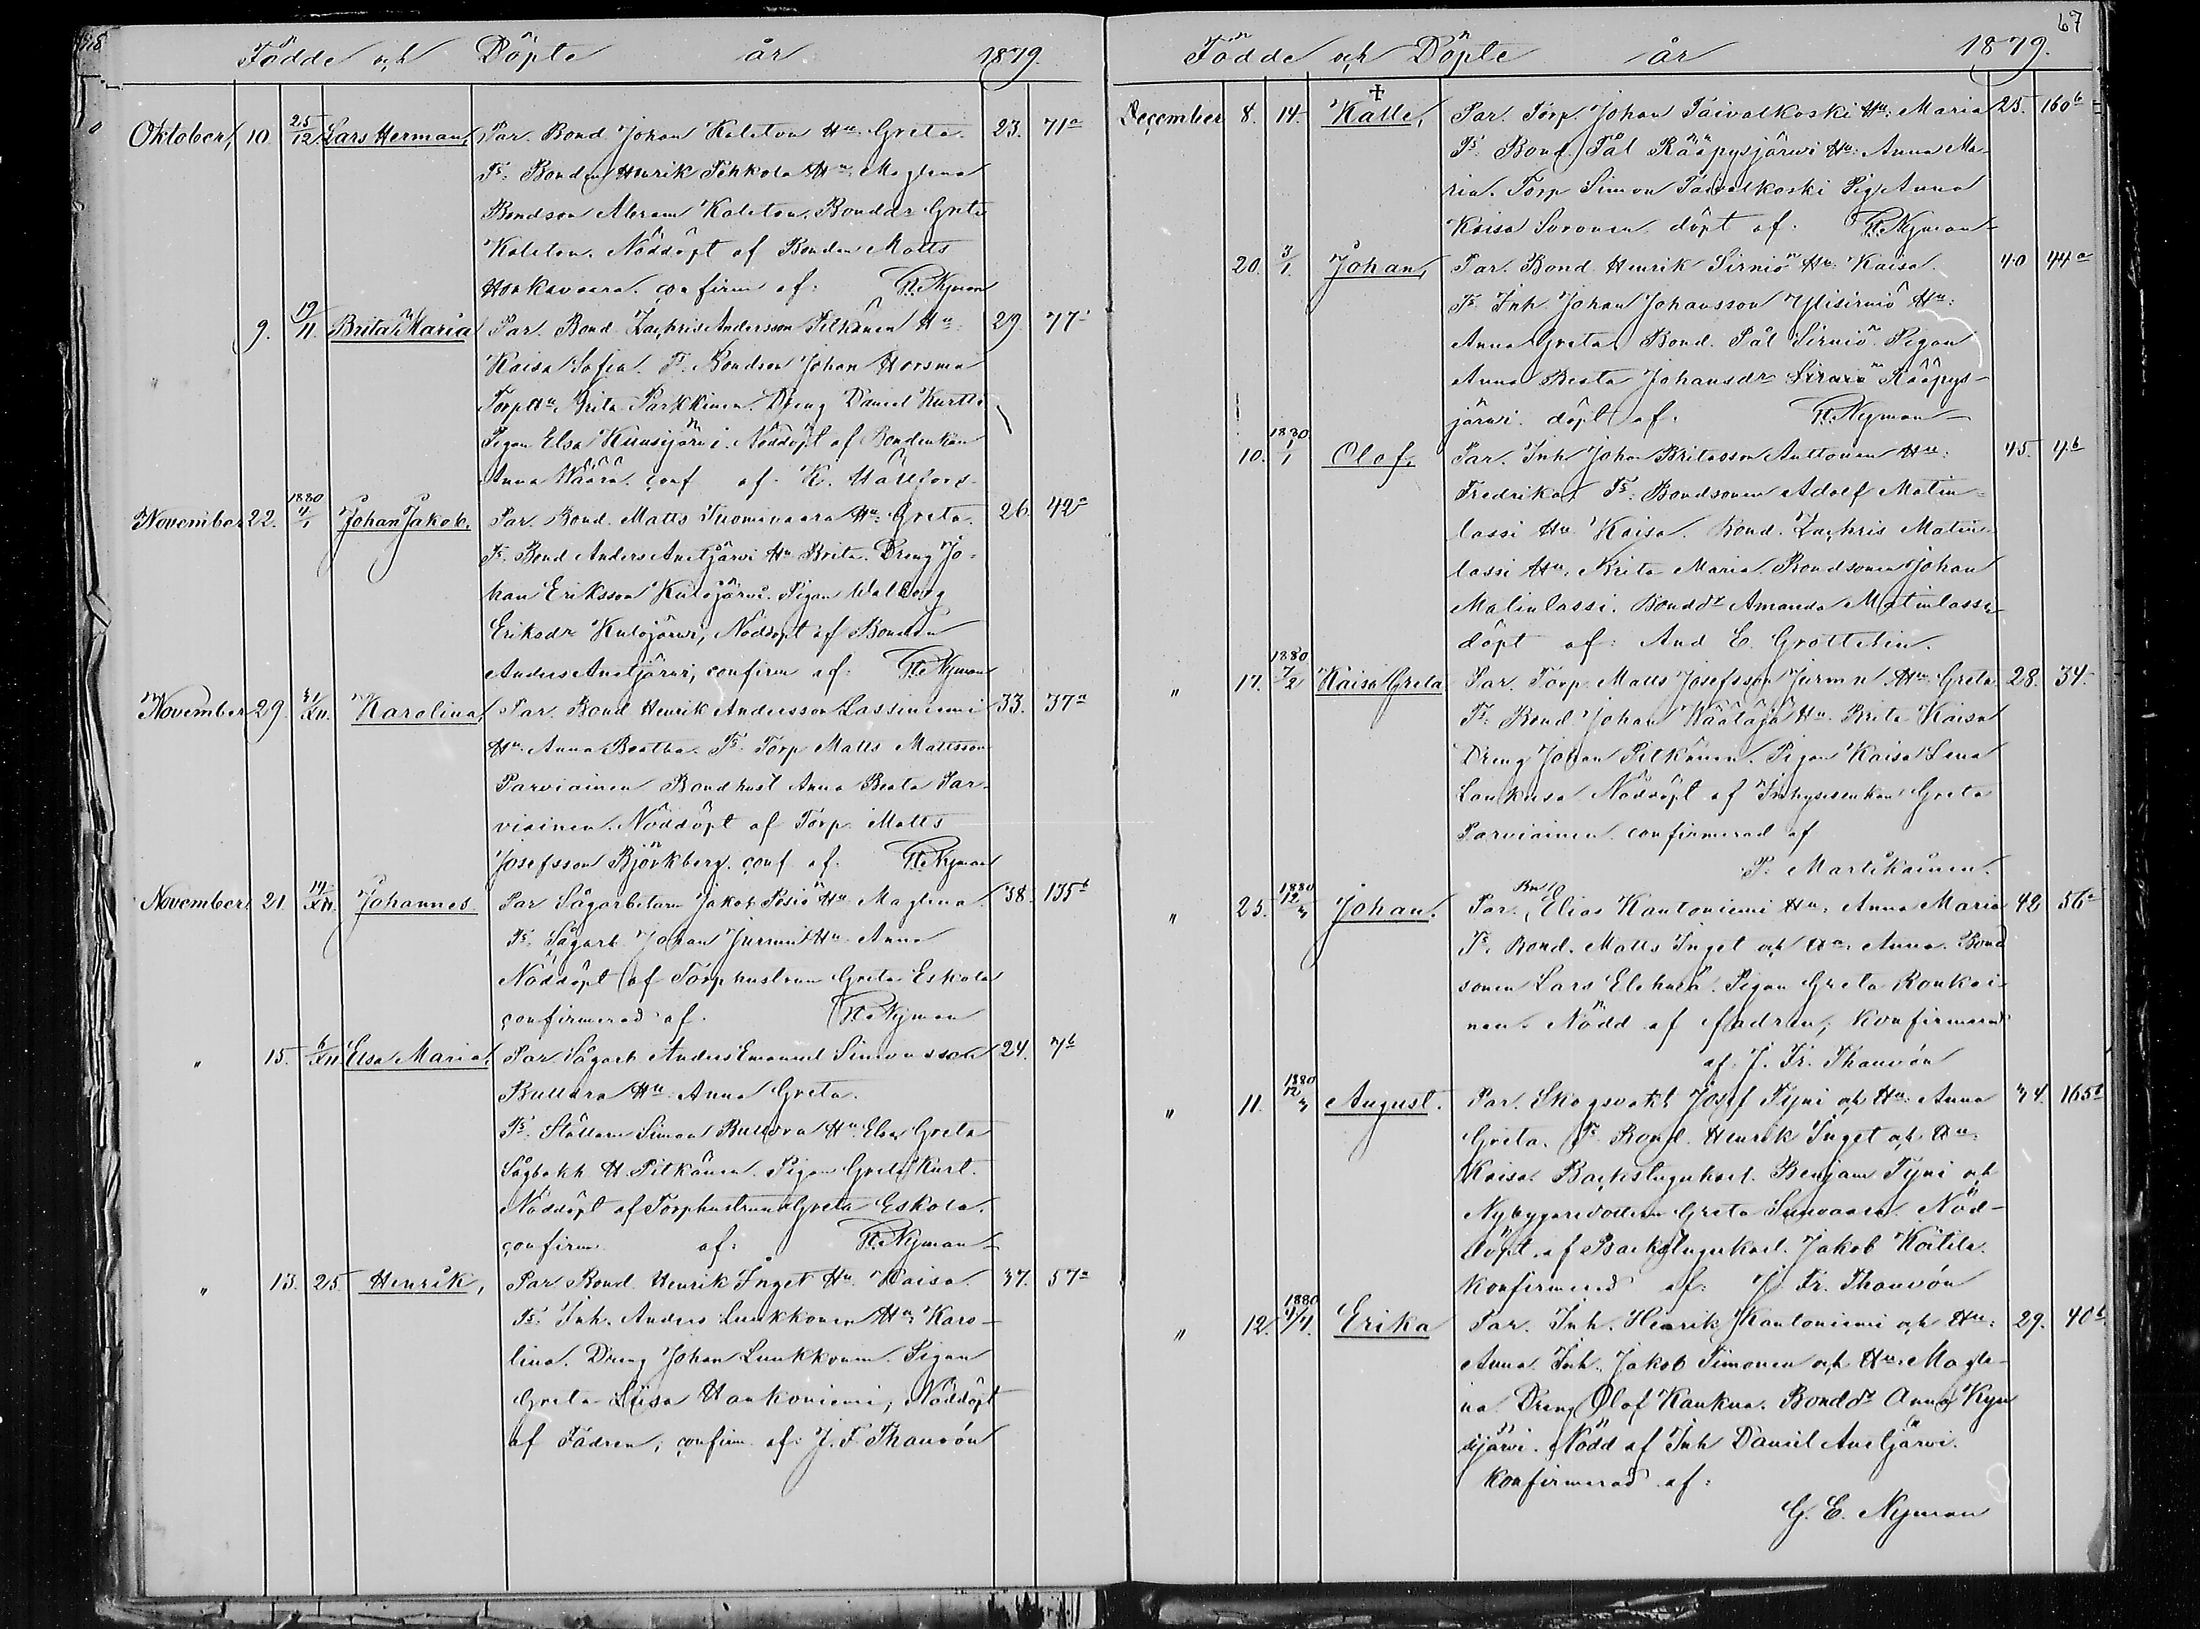 Födde och Döpte år 1879.
Oktober, 10. 25/12. Lars Herman, Par. Bond Johan Koleton Hu. Greta. 23. 71a
Ts: Bonden Henrik Pohkola Hu. Maglena
Bondson Abram Koleton. Bonddr Greta
Koleton. Nöddöpt af Bonden Matts
Honkavaara. confirm af: Nyman
" 9. 19/11. Brita Maria Par. Bond. Zachris Andersson Pitkänen Hu. 29. 77
Kaisa Sofia. T. Bondson Johan Horsma
Torphu. Brita Parkkinen. Dreng Daniel Kurtti
Pigan Elsa Kuusijärvi. Nöddöpt af Bondenkan
Anna Määrä. conf af. K. Hällfors.
November 22. 1880 4/1 Johan Jakob. Par. Bond. Matts Tuomivaara Hu. Greta. 26. 42a
Ts. Bond Anders Anetjärvi Hu Brita. Dreng Jo-
han Eriksson Kulojärvi. Pigan Walborg
Eriksdr Kulojärvi, Nöddöpt af Bonden
Anders Anetjärvi, confirm af. Nyman
November 29. 31/XII. Karolina, Par. Bond Henrik Andersson Lassiniemi 33. 37a
Hu. Anna Beatha. Ts. Torp Matts Mattsson
Parviainen Bondhust Anna Beata Par-
viainen. Nöddöpt af Torp. Matts
Josefsson Björkberg. conf af. Nyman
November 21. 14/XII. Johannes. Par Sågarbetaren Jakob Posio Hu. Maglena. 38. 135b
Ts. Sågarb. Johan Jurmu Hu. Anna
Nöddöpt af Torphustrun Greta Eskola
confirmerad af. Nyman
" 15. 6/XII Elsa Maria. Par. Sågarb Anders Emanuel Simonsson 24. 7b
Bullera Hu. Anna Greta.
Ts. Simon Hu. Elsa Greta
Sågbokh H. Pitkänen. Pigan Greta Kurt.
Nöddöpt af Torphustrun Greta Eskola.
confirm. af: Nyman
" 13. 25. Henrik, Par Bond. Henrik Inget Hu. Kaisa. 37. 57a
Ts. Inh. Anders Luukkonen Hu. Karo-
lina. Dreng Johan Luukkonen. Pigan
Greta Liisa Hankoniemi, Nöddöpt
af Fadren, confirm. af: J. F. Thauvón
67
Födde och Döpte år 1879.
December 8. 14. † Kalle, Par. Torp. Johan Taivalkoski Hu. Maria 25. 160b
Ts. Bond. Pål Rääpysjärvi Hu. Anna Ma-
ria. Torp Simon Taivalkoski Pig Anna
Kaisa Soronen döpt af. Nyman
20. 3/1. Johan, Par. Bond. Henrik Sirniö Hu. Kaisa. 40 44a
Ts. Inh. Johan Johansson Ylisirniö Hu.
Anna Greta, Bond. Pål Sirniö Pigan
Anna Beata Johansdr Rääpys-
järvi. döpt af. Nyman
10. 1830 1/1 Olof, Par. Inh. Johan Britasson Anttonen Hu. 45. 4b
Fredrika, Ts: Bondsonen Adolf Matin-
lassi Hu Kaisa. Bond. Zachris Matin-
lassi Hu. Brita Maria. Bondsonen Johan
Matinlassi. Bonddr Amanda Matinlassi
döpt af: And E.
" 17. 1880 7/2 Kaisa Greta Par. Torp. Matts Josefsson Jurmu Hu. Greta 28. 34.
Ts. Bond Johan Määtäjä Hu. Brita Kaisa
Dreng Johan Pitkänen. Pigan Kaisa Lena
Laukusa Nöddöpt af Inhyseskan Greta
Parviainen confirmerad af
P. Martikainen.
" 25. 1880 12/3 Johan. Par. Elias Kantoniemi Hu. Anna Maria 42 56a
Ts. Bond. Matts Inget och Hu. Anna. Bond
sonen Lars Elehuä. Pigan Greta Ronkai
nen. Nödd af fadren, Konfirmerad
af. J. Fr. Thauvón
" 11. 1880 12/3 August. Par. Skogsvakt Josef Tyni och Hu. Anna 34. 165b
Greta. Ts. Bond. Henrik Inget och Hu.
Kaisa. Backstugukarl. Benjam Tyni och
Nybyggaredottern Greta. Nöd-
döpt af Backstugukarl. Jakob Kätilä.
Konfirmerad af: J. Fr. Thauvón
" 12. 1880 4/4. Erika Par. Inh. Henrik Kantoniemi och Hu. 29. 40b
Anna. Inh. Jakob Timonen och Hu. Magle-
na. Dreng Olof Kaukua. Bonddr Anna Kyn
sijärvi. Nödd af Inh Daniel Anetjärvi.
Konfirmerad af:
G. E. Nyman